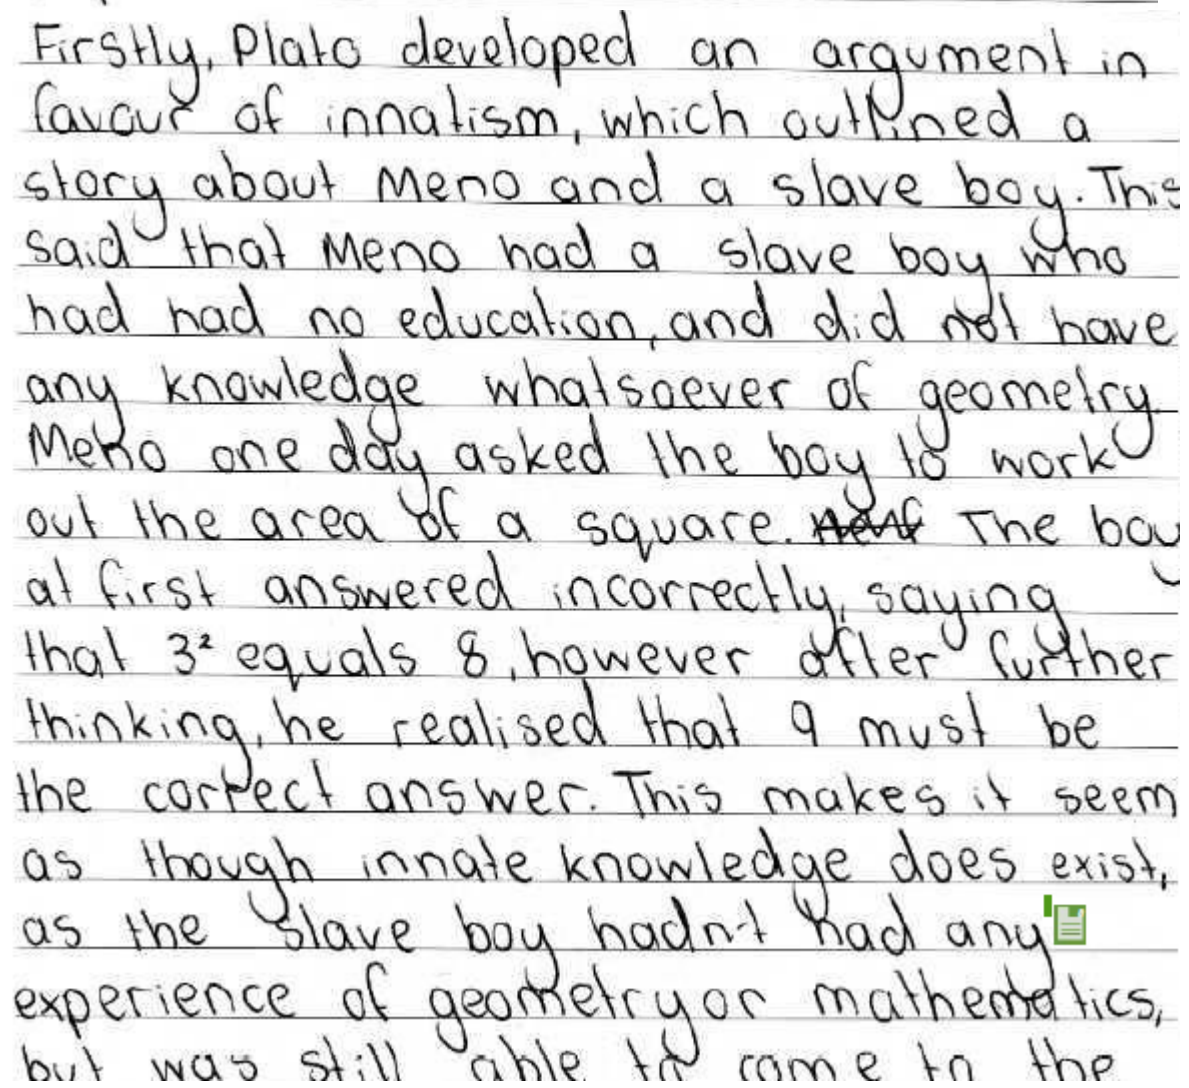 Firstly, Plato developed an argument in
favour of innatism, which outlined a
story about Meno and a slave boy. This
said that Meno had a slave boy who
had had no education, and did not have
any knowledge whatsoever of geometry.
Meno one day asked the boy to work
out the area of a square. The boy
at first answered incorrectly, saying
that 3² equals 8, however after further
thinking, he realised that 9 must be
the correct answer. This makes it seem
as though innate knowledge does exist,
as the slave boy hadn't had any
experience of geometry or mathematics,
but was still able to come to the